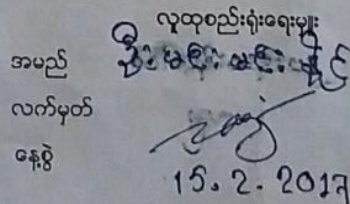 လူထုစည်းရုံးရေးမှူး
အမည် ဦးမင်းမင်းနိုင်
လက်မှတ်
နေ့စွဲ 15.2.2017